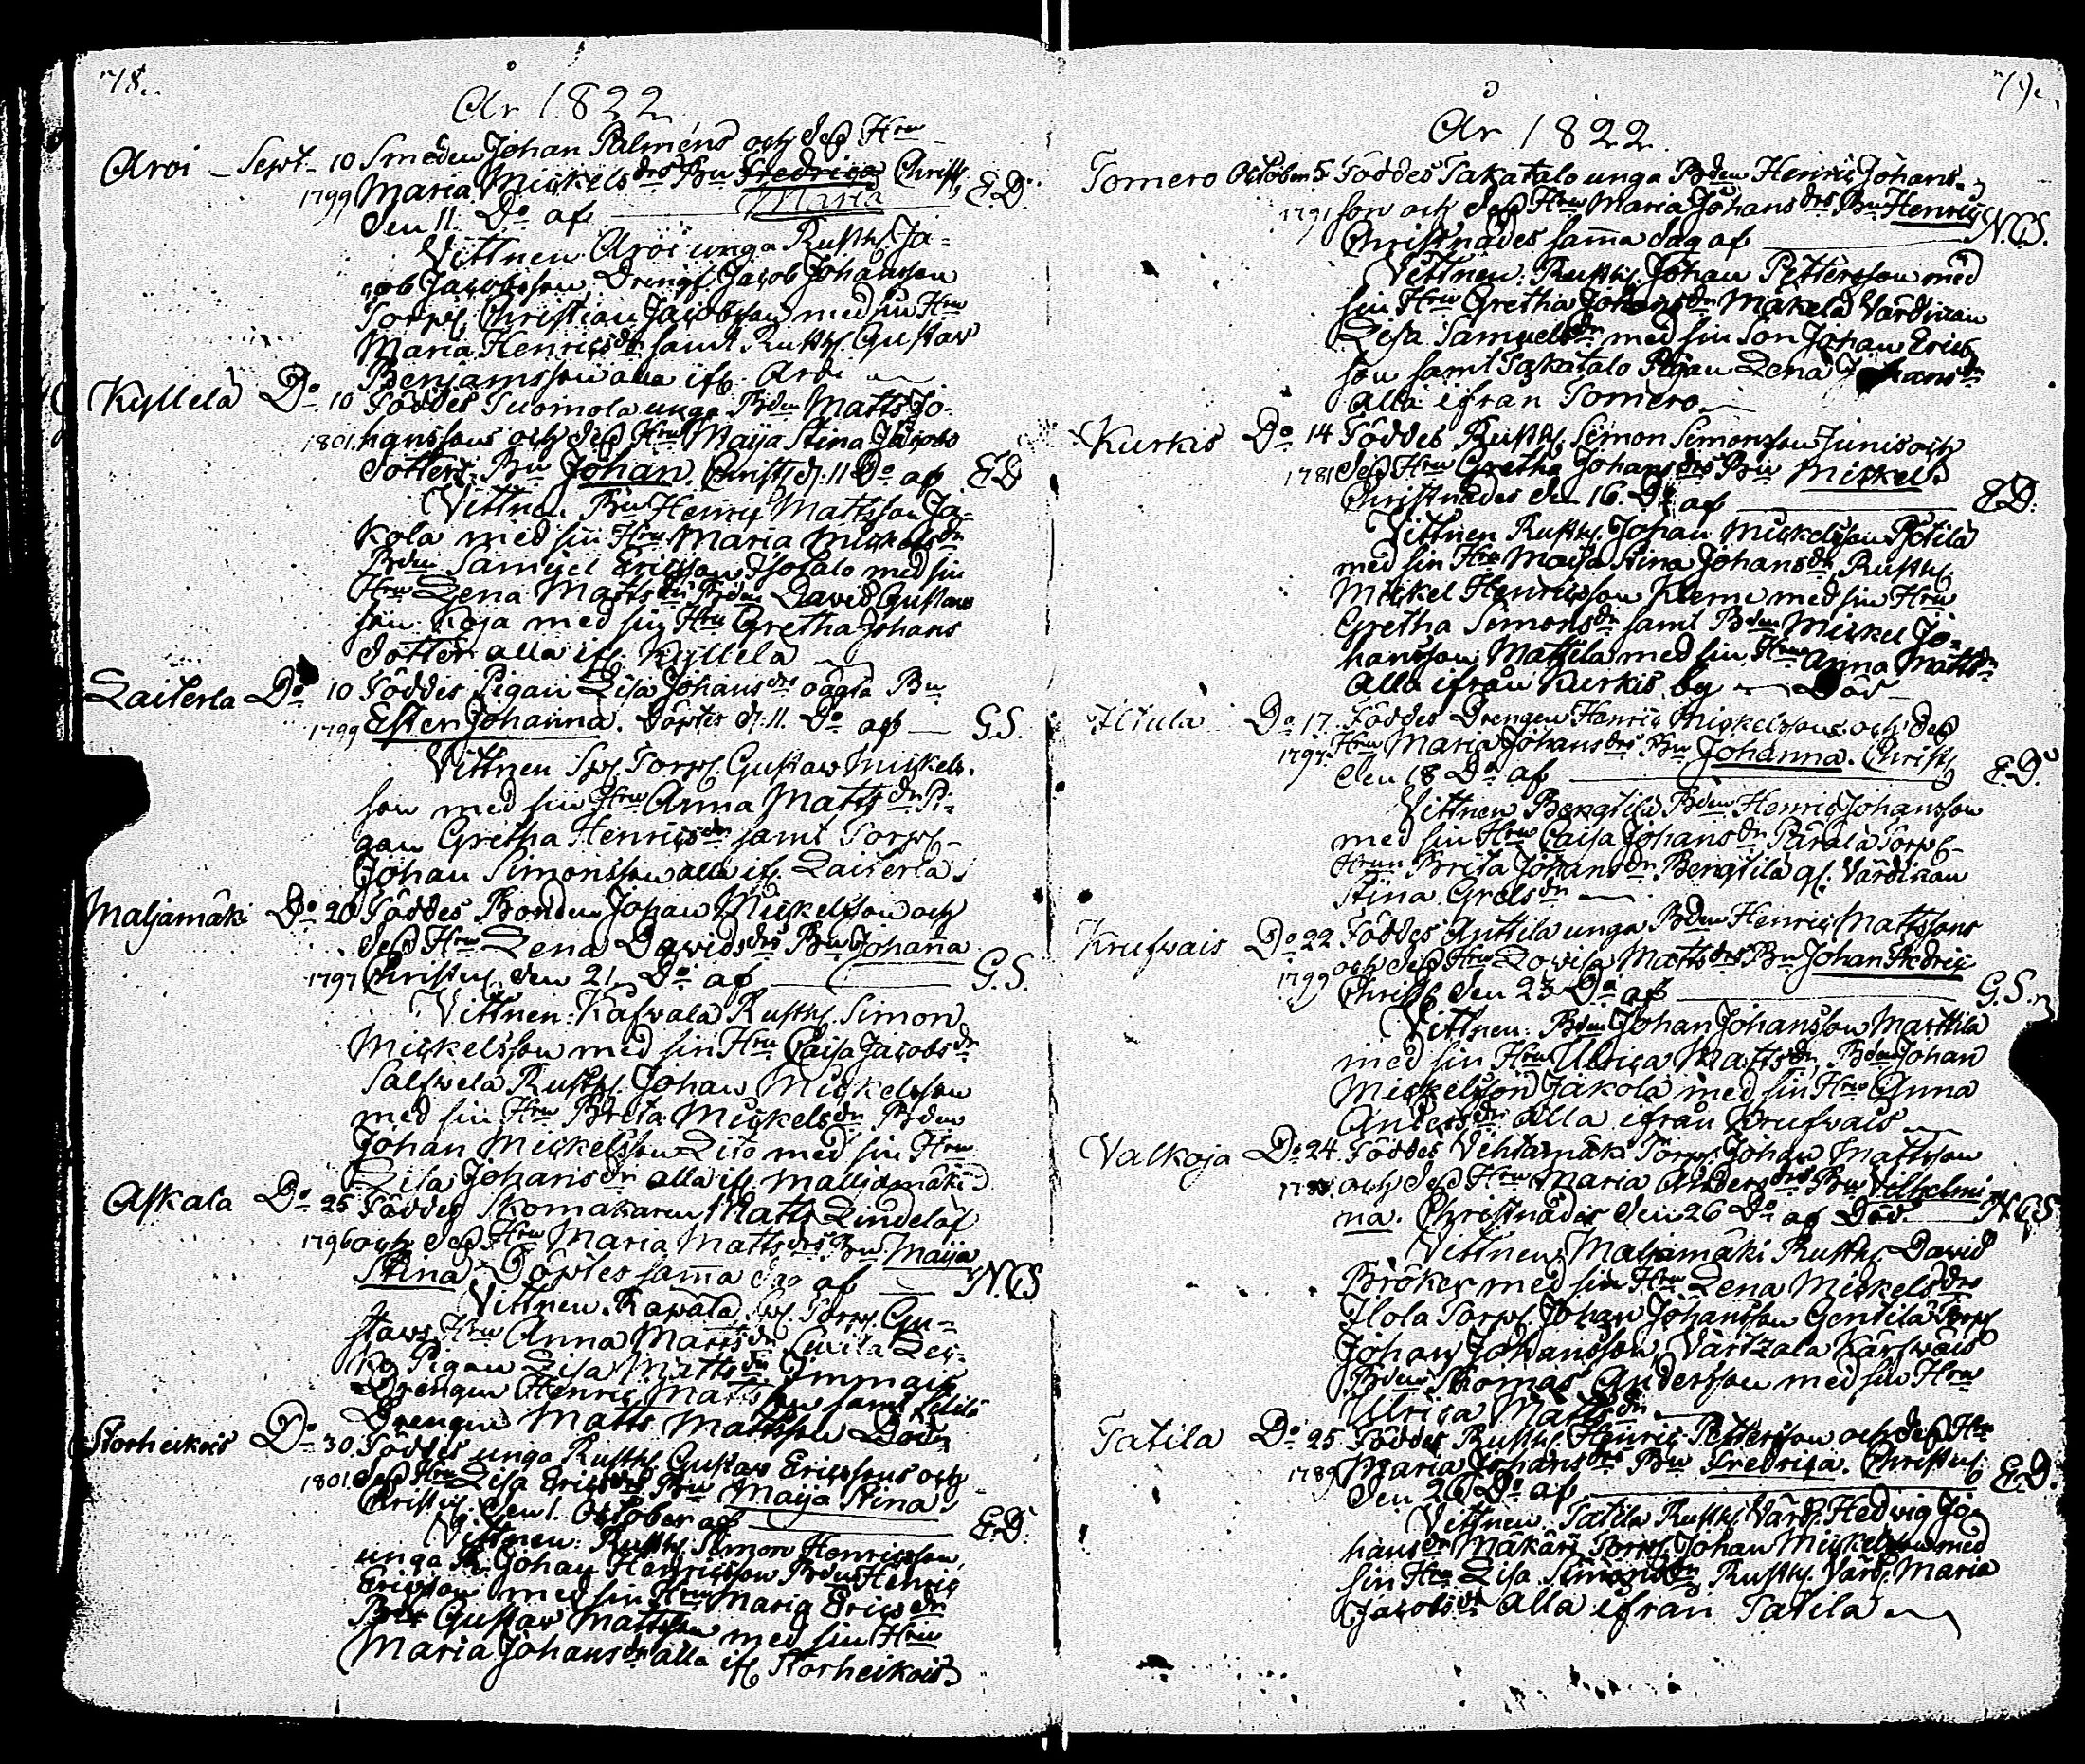 78.
År 1822.
Aroi Sept. 10 Smeden Johan Palmens och dess Hru
1799 Maria Mickels drs Bn Fredrica Christ.
Maria
den 11. Do af E.D.
Vittnen Aroi unga Rusth. Ja-
cob Jacobsson, Drengs. Jacob Johansson
Torp. Christian Jacobsson med sin Hru
Maria Henricsdr samt Rusth. Gustav
Benjamsson alla ifr. Aroi
Kyllelä Do 10 Föddes Tuomola unga Bdens Matts Jo-
1801. hanssons och dess Hrus Maija Stina Jacobs
dotters Bn Johan. Christ. d. 11 Do af E D
Vittnen. Bn Henric Mattsson Ja-
kola med sin Hru Maria Mickelsdr
Bden Samuel Ericsson Isotalo med sin
Hru Lena Mattsdr Bden David Gustavs
son Koja med sin Hru Gretha Johans
dotter alla ifr. Kyllelä
Laiterla Do 10 Föddes Pigan Lisa Johansdrs oägta Bn
1799 Ester Johanna. Döptes d. 11. Do af G.S.
Vittnen Torp. Gustav Mickels-
son med sin Hru Anna Matts dr Pi-
gan Gretha Henricsdr samt Torp.
Johan Simonsson alla ifr. Laiterla.
Maljamäki Do 20 Föddes Bonden Johan Mickelsson och
dess Hru Lena Davids drs Bn Johanna
1797 Christn. den 21 Do af G.S.
Vittnen. Rusth. Simon
Mickelsson med sin Hru Caisa Jacobsdr
Rusth. Johan Mickelsson
med sin Hru Brita Mickelsdr Bden
Johan Mickelsson Lito med sin Hru
Lisa Johansdr alla ifr. Maljamäki
Askala Do 25 Föddes Skomakaren Matts Lindelöf
1796 och dess Hru Maria Mattsdrs Bn Maija
Stina Döptes samma dag af N.G.S
Vittnen. Torp. Gu-
stavs Hru Anna Mattsdr
Pigan Lisa Mattsdr
Drengen Henric Mattsson samt
Drengen Matts Mattsson Död
Storheikois Do 30 Föddes unga Rusth. Gustav Ericssons och
1801. dess Hru Lisa Ericsdrs Bn Maija Stina
Christn. den 1. October af E.D.
Vittnen. Rusth. Simon Henricsson,
unga Johan Henricsson Bden Henric
Ericsson med sin Hru Maria Ericsdr
Bden Gustav Mattsson med sin Hru
Maria Johansdr alla ifr Storheikois
79.
År 1822.
Tomero October 5 Föddes Takatalo unga Bden Henric Johans-
1791 son och dess Hru Maria Johans drs Bn Henric
Christnades samma dag af N.G.S.
Vittnen: Rusth. Johan Pettersson med
sin Hru Gretha Johansdr Mäkelä Värdinnan
Lisa Samuelsdr med sin Son Johan Erics
son samt Takatalo Pigan Lena Johansdr
alla ifrån Tomero
Kurkis Do 14 Föddes Rusth. Simon Simonsson Junis och
1781 dess Hru Gretha Johansdrs Bn Mickel
Christnades den 16. Do af E.D.
Vittnen Rusth. Johan Mickelsson
med sin Hru Maija Stina Johansdr Rusth.
Mickel Henricsson Kleme med sin Hru
Gretha Simonsdr samt Bden Mickel Jo-
hansson Mattila med sin Hru Anna Mattsdr
alla ifrån Kurkis by Död
Do 17. Föddes Drengen Henric Mickelssons och dess
1797. Hru Maria Johansdrs Bn Johanna. Christ.
den 18 Do af E.D.
Vittnen Bengtilä Bden Henric Johansson
med sin Hru Caisa Johansdr Torp.
Hrun Brita Johansdr Bengtilä gl. Värdinnan
Stina Grelsdr
Krufvais Do 22 Föddes Anttila unga Bden Henric Mattssons
1799 och dess Hru Lovisa Mattsdrs Bn Johan Fredric
Christ. den 23 Do af G.S.
Vittnen: Bden Johan Johansson Marttila
med sin Hru Ulrica Mattsdr, Bden Johan
Mickelsson Jakola med sin Hru Anna
Andersdr alla ifrån Krufvais
Valkoja Do 24. Föddes Vehkamäki Torp. Johan Mattsson
och dess Hru Maria Andersdrs Bn Vilhelmi
na. Christnades den 26 Do af Död N.G.S
Vittnen Maljamäki Rusth. David
Bröker med sin Hru Lena Mickelsdr
Ilola Torp. Johan Johansson Gentilä Torp.
Johan Johansson, Karfvais
Bden Thomas Andersson med sin Hru
Ulrica Mattsdr
Tatila Do 25 Föddes Rusth. Henric Pettersson och dess Hr
1789 Maria Johansdrs Bn Fredrica. Christn.
den 26 Do af E.D.
Vittnen. Tatila Rusth. Värd. Hedvig Jo-
hansdr Mäkäri Torp. Johan Mickelsson med
sin Hru Lisa Simonsdr, Rusth. Värd. Maria
Jacobsdr alla ifrån Tatila